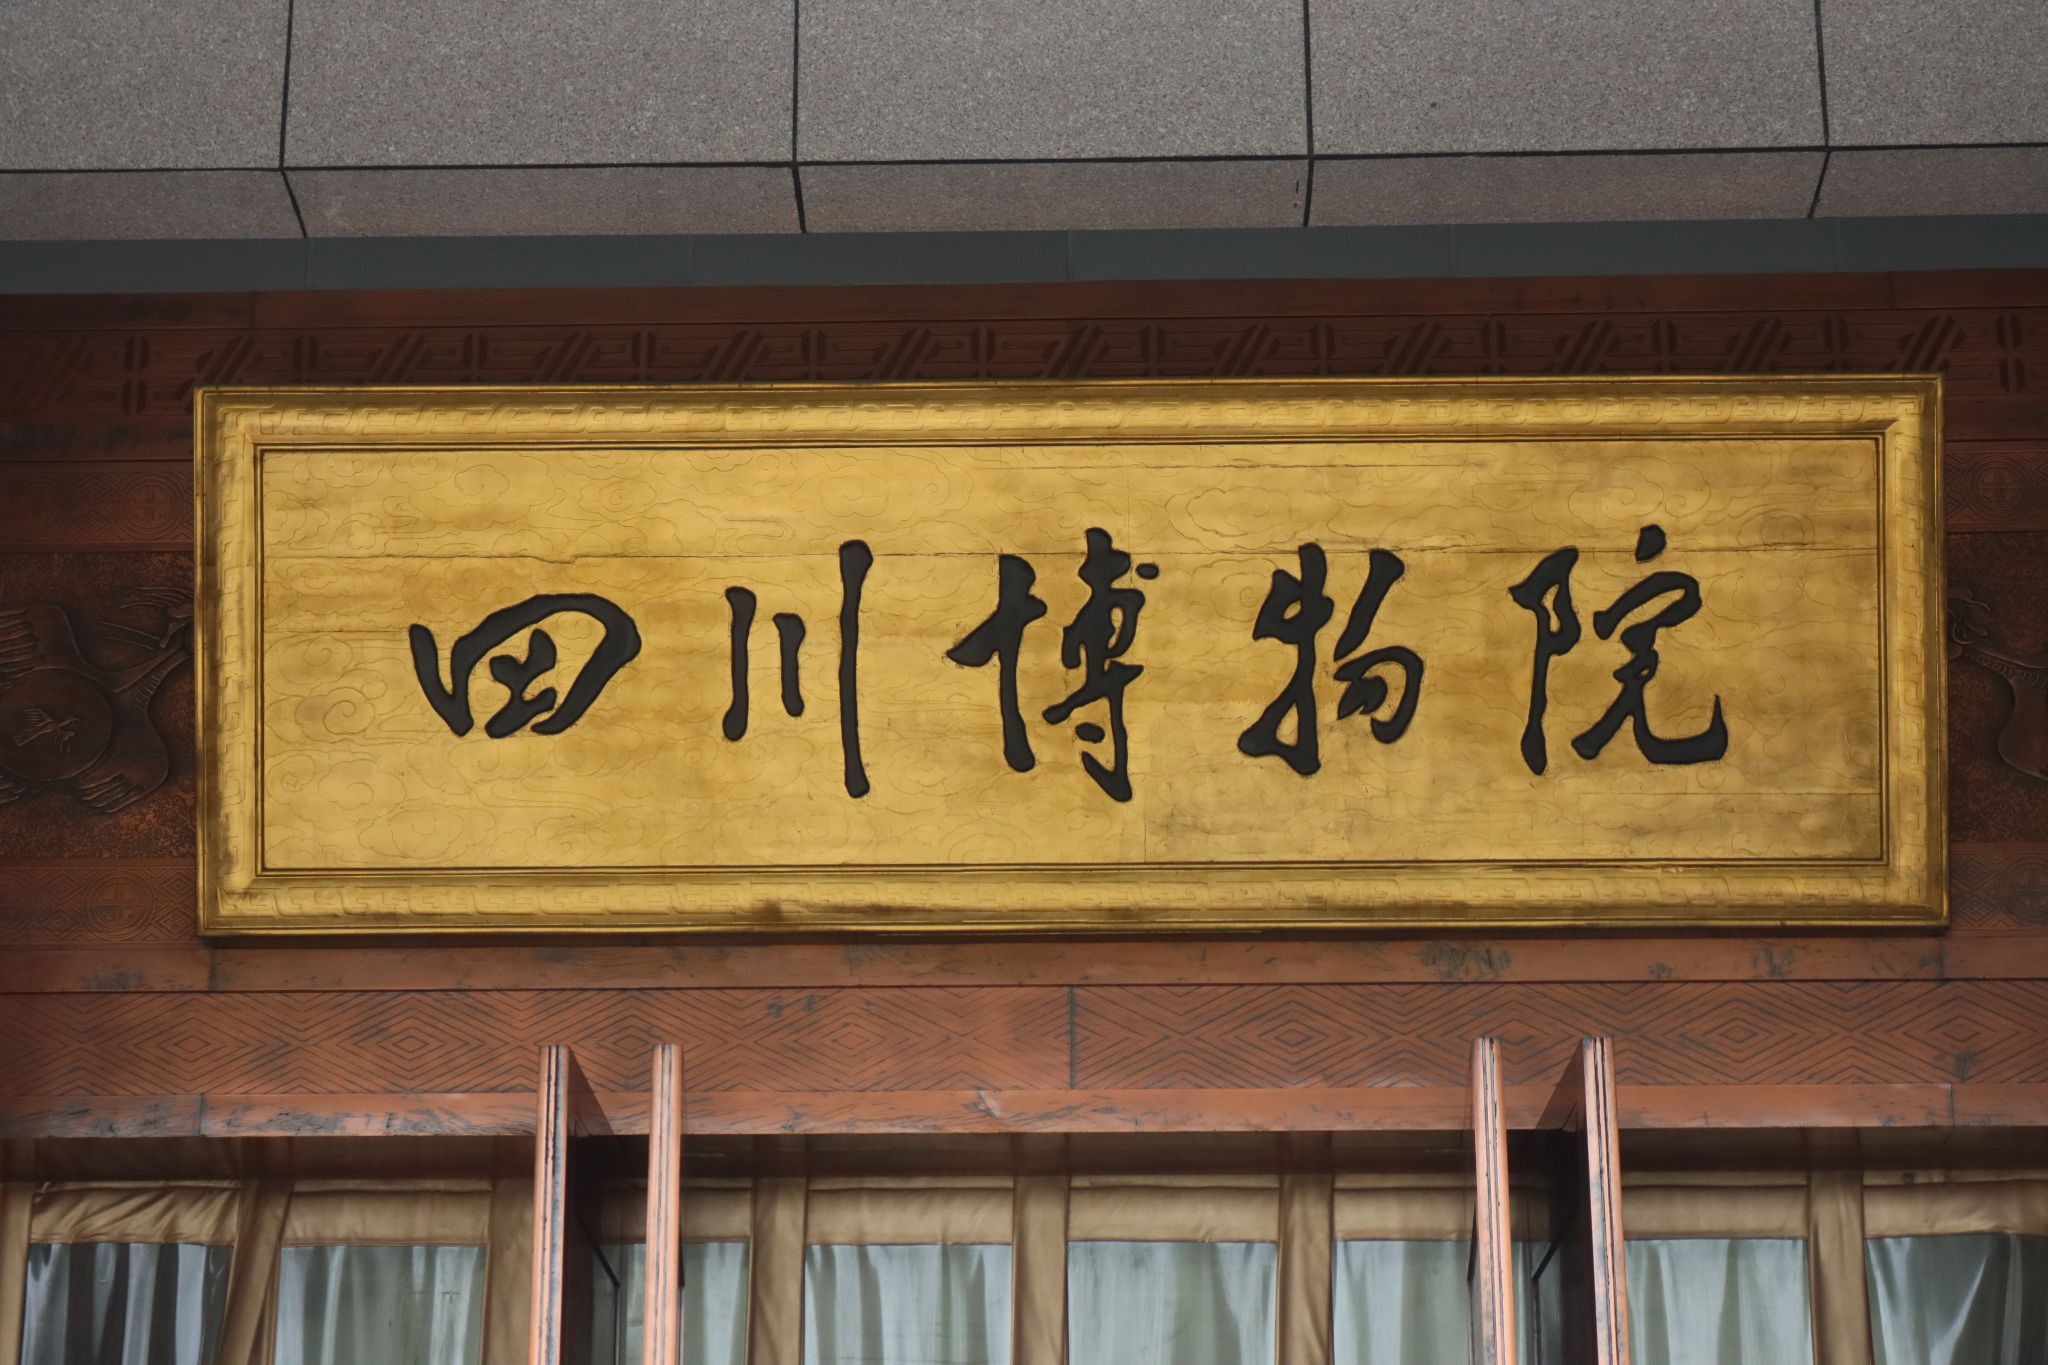 四川博物院